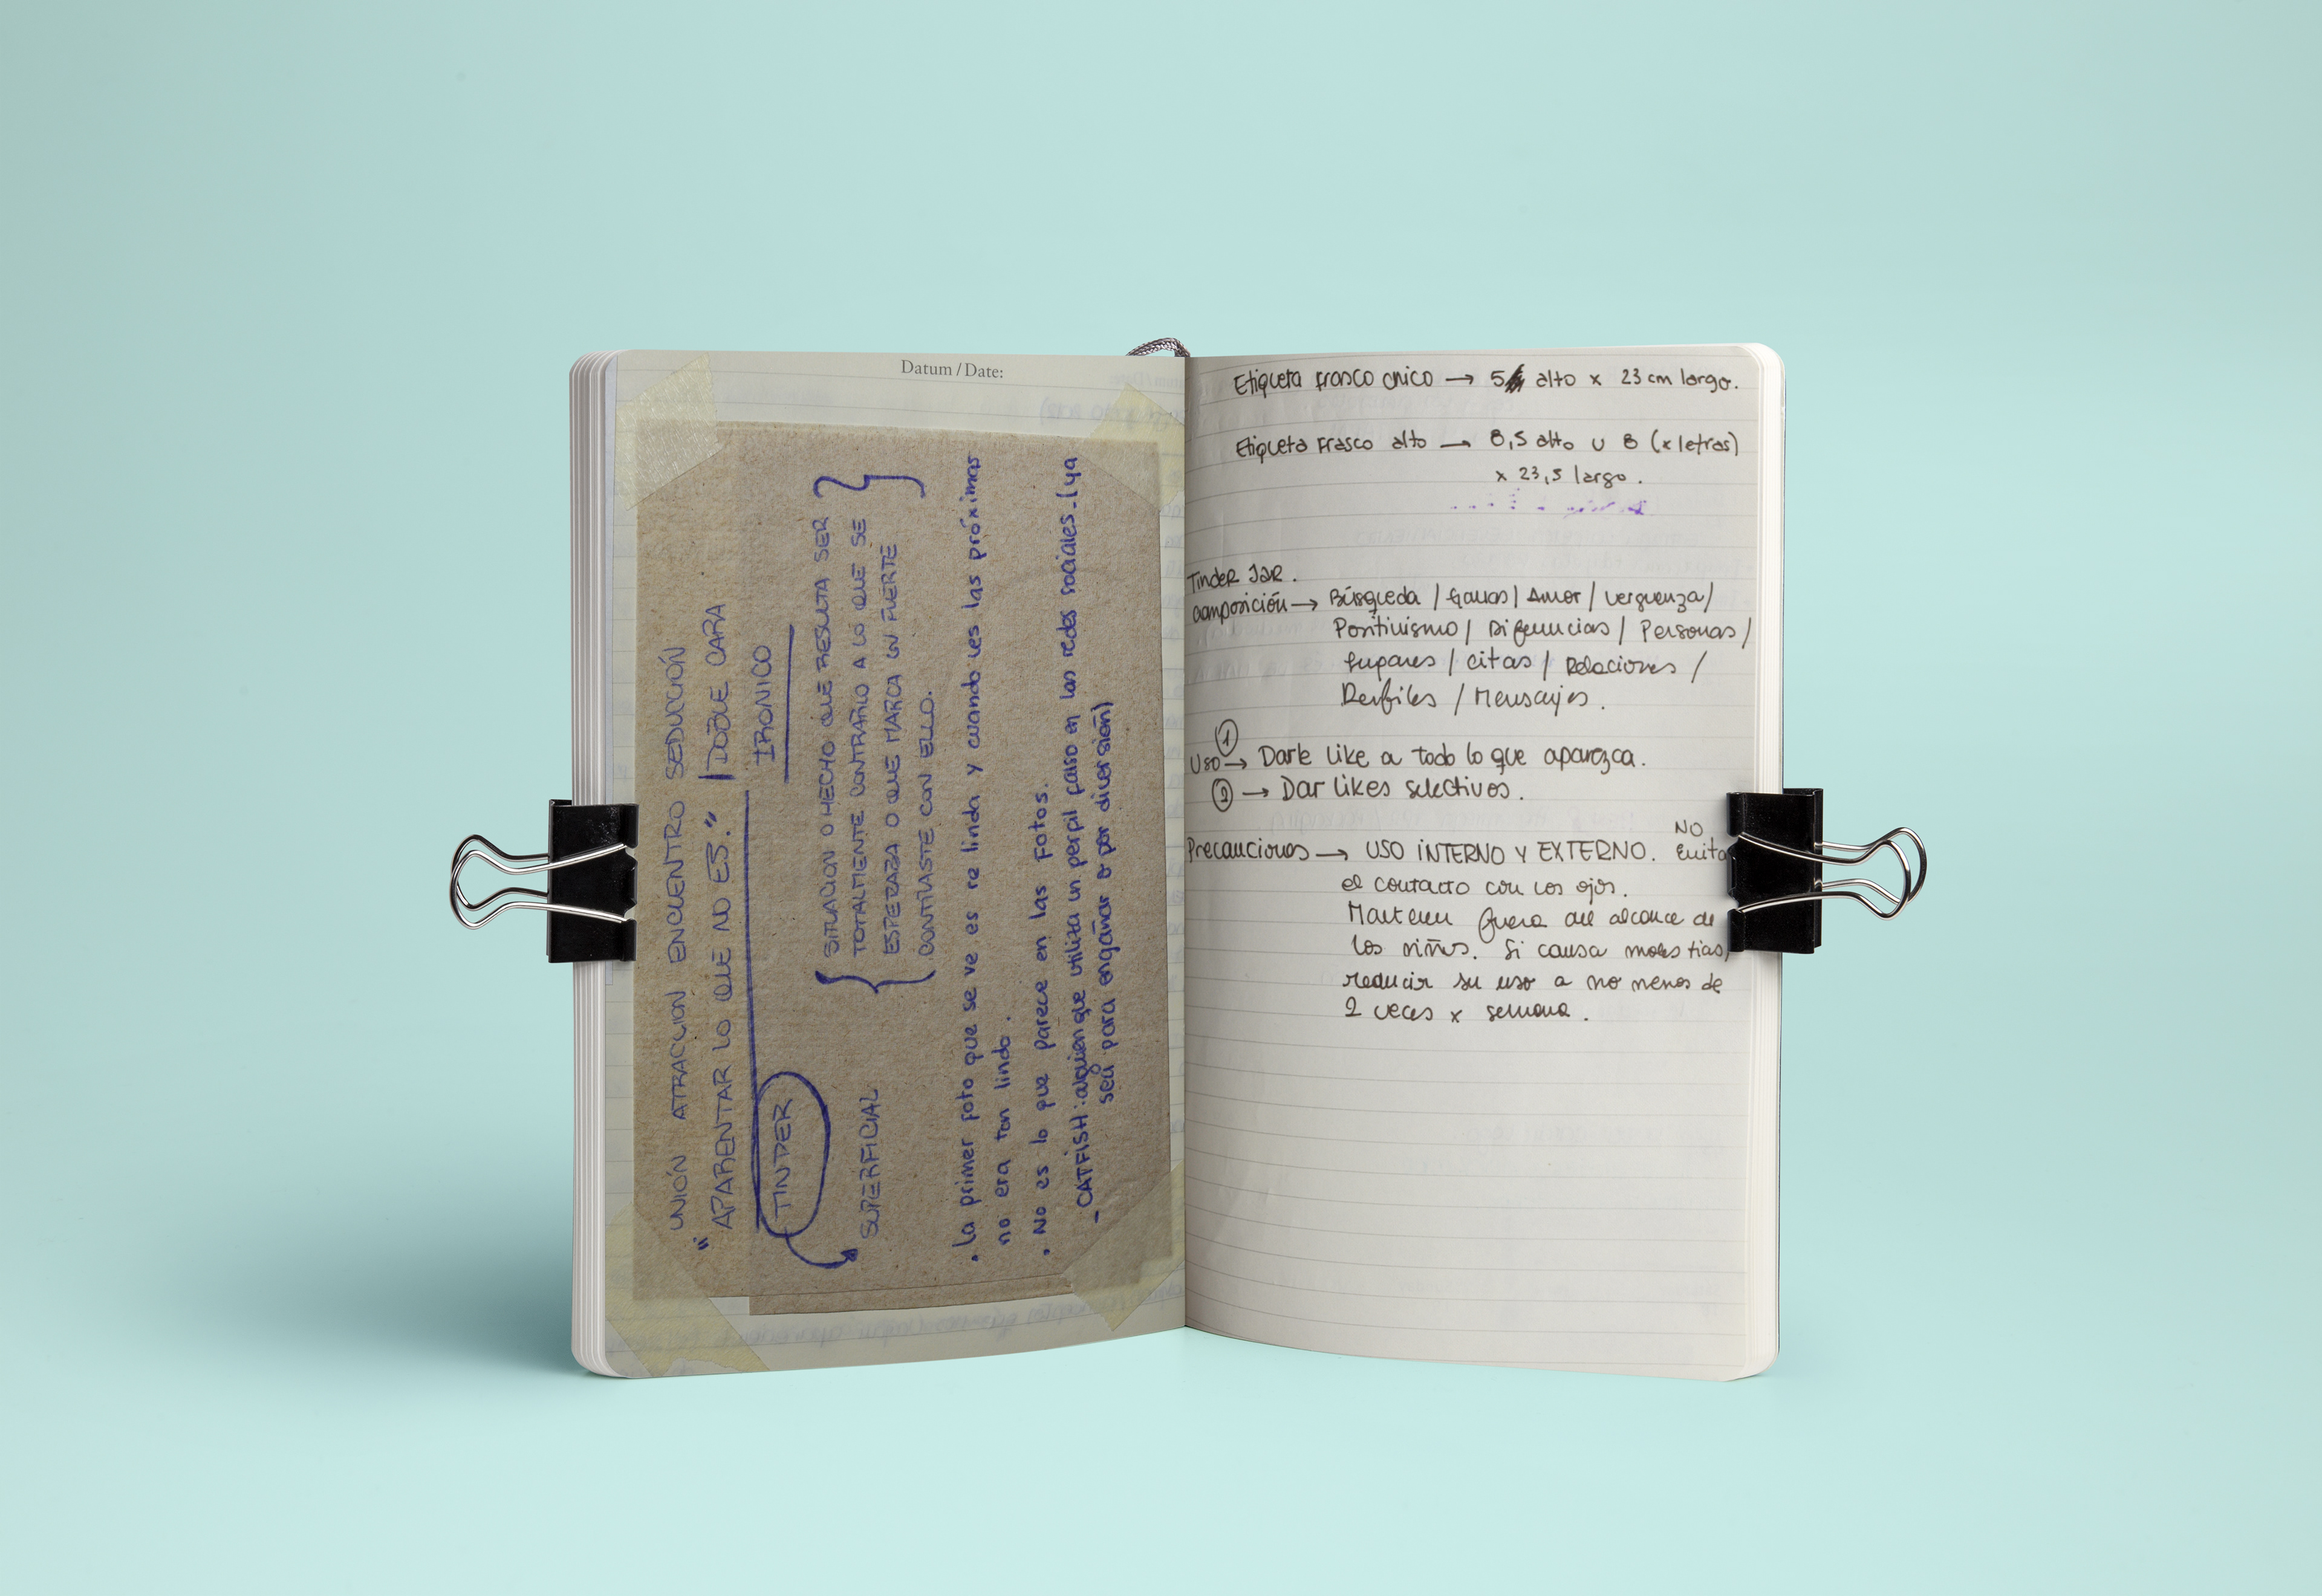 Datum / Date:
UNIÓN ATRACCION ENCUENTRO SEDUCCIÓN
"APARENTAR LO QUE NO ES." | DOBLE CARA
IRONICO
TINDER
SUPERFICIAL
{ SITUACION O HECHO QUE RESULTA SER }
TOTALMENTE CONTRARIO A LO QUE SE
ESPERABA O QUE MARCA UN FUERTE
CONTRASTE CON ELLO.
. La primer foto que se ve es re linda y cuando ves las próximas
no era tan linda.
. No es lo que parece en las fotos.
- CATFISH: alguien que utiliza un perfil falso en las redes sociales. (ya
sea para engañar o por diversión)
Etiqueta frasco chico → 5 alto x 23 cm largo.
Etiqueta frasco alto → 8,5 alto u 8 (x letras)
x 23,5 largo.
Tinder Jar.
Composición → Búsqueda / Ganas / Amor / Verguenza /
Positivismo / Diferencias / Personas /
Lugares / Citas / Relaciones /
Perfiles / Mensajes.
Uso ① → Darle like a todo lo que aparezca.
② → Dar likes selectivos.
NO
Precauciones → USO INTERNO Y EXTERNO. Evita
el contacto con los ojos.
Mantener fuera del alcance de
los niños. Si causa molestias,
reducir su uso a no menos de
2 veces x semana.